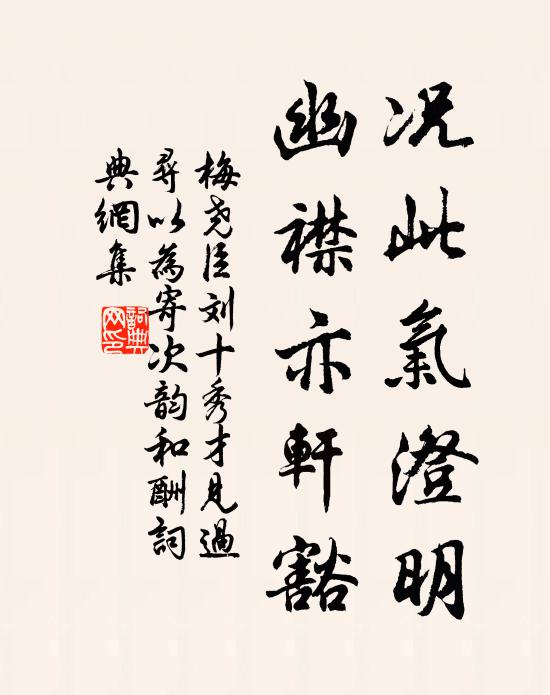 况此氣澄明
幽襟亦軒豁
梅尧臣刘十秀才見過
尋以為寄次韵和酬詞
典網集
詞典网印